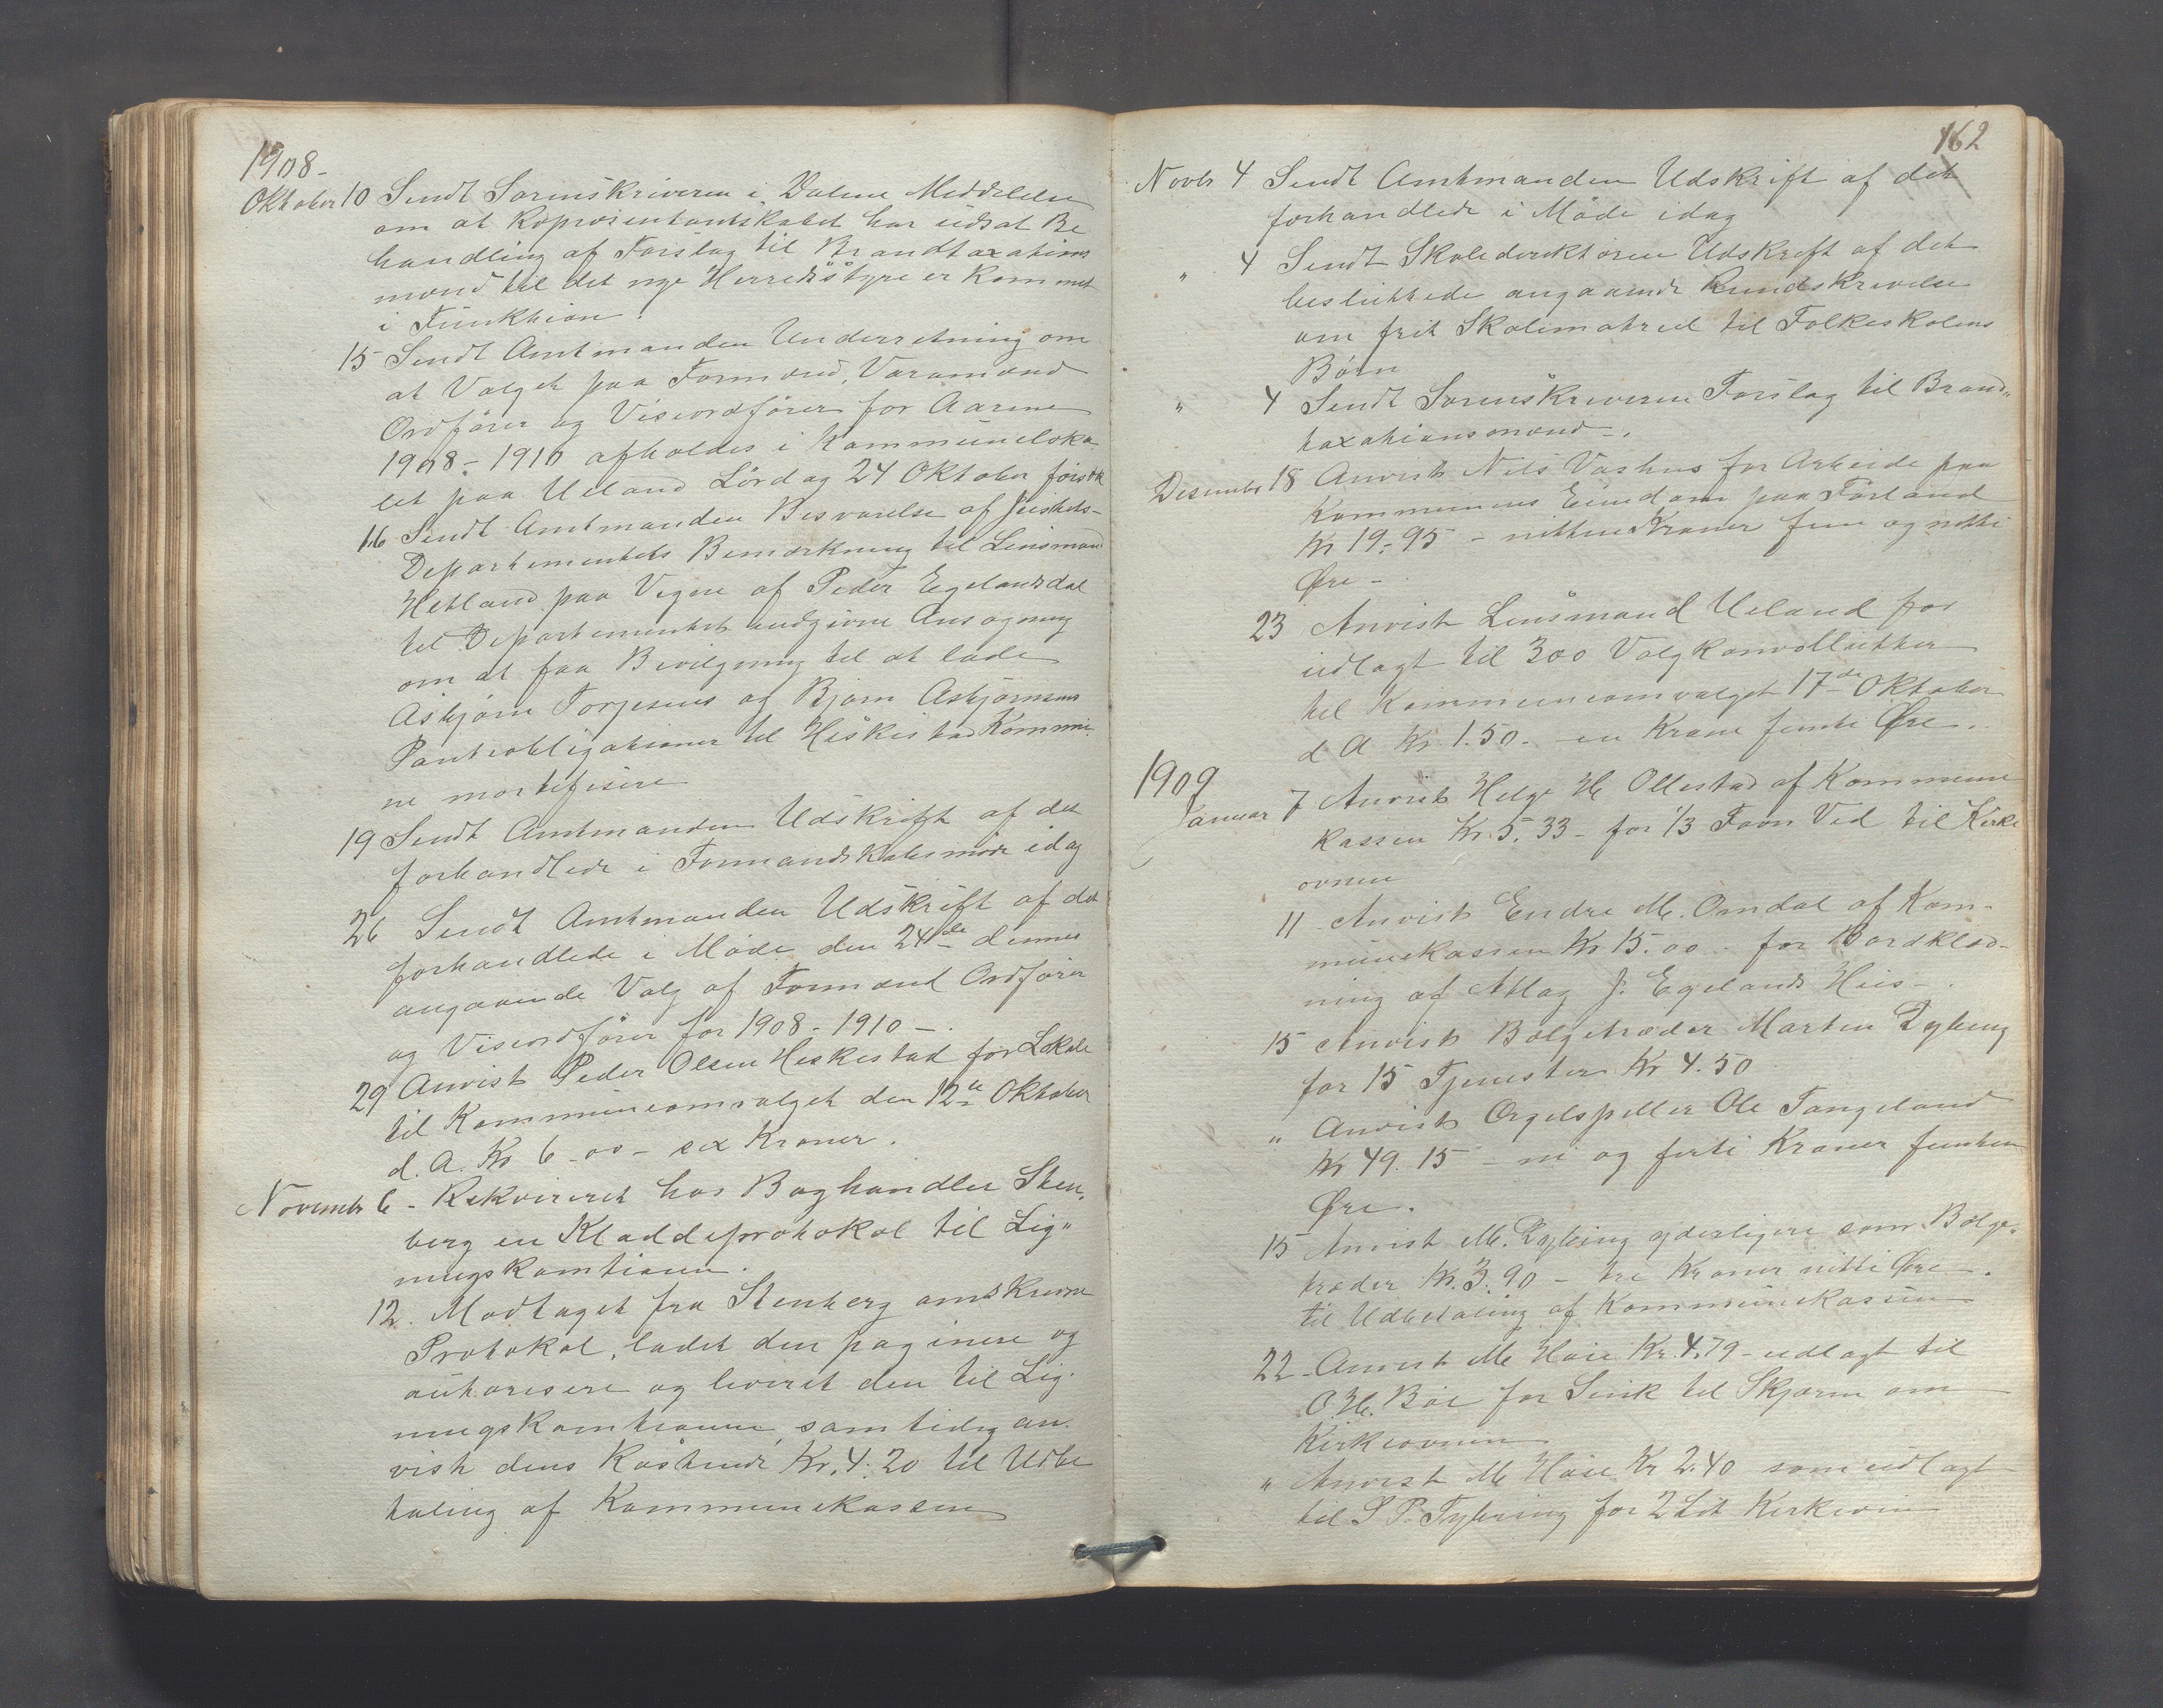 1908-
Oktober 10 Sendt Sorenskriveren i Dalene Meddelelse
om at Repræsentantskabet har udsat Be
handling af Forslag til Brandtaxations
mænd til det nye Herredsstyre er kommet
i Funktion.
15 Sendt Amtmanden Underretning om
at Valget paa Formænd, Varamænd
Ordfører og Viseordfører for Aarene
1908-1910 afholdes i Kommuneloka
let paa Ueland Lørdag 24 Oktober førstk
16 Sendt Amtmanden Besvarelse af Justits-
Departementets Bemærkning til Lensmand
Hetland paa Vegne af Peder Egelandsdal
til Departementet indgivne Ansøgning
om at faa Bevilgning til at lade
Asbjørn Torgesens og Bjørn Asbjørnsens
Panteobligationer til Heskestad Kommu-
ne mortifisere
19 Sendt Amtmanden Udskrift af det
forhandlede i Formandskabsmøde idag
26 Sendt Amtmanden Udskrift af det
forhandlede i Møde den 24de dennes
angaaende Valg af Formænd Ordfører
og Viseordfører for 1908-1910-.
29 Anvist Peder Olsen Heskestad for Lokale
til Kommunevalget den 12te Oktober
d. A. Kr 6-00- sex Kroner.
Novembr 6 - Rekvireret hos Boghandler Sten,
berg en Kladdeprotokol til Lig"
ningskomtionen.
12. Modtaget fra Stenberg omskrevne
Protokol, ladet den paginere og
authorisere og leveret den til Lig-
ningskomtionen, samtidig an-
vist dens Kostende Kr. 4.20 til Udbe
taling af Kommunekassen
162
Novbr 4 Sendt Amtmanden Udskrift af det
forhandlede i Møde idag
" 4 Sendt Skoledirektøren Udskrift af det
besluttede angaaende Rundskrivelse
om frit Skolemateriel til Folkeskolens
Børn
" 4 Sendt Sorenskriveren Forslag til Brand"
taxationsmænd-.
Desember 18 Anvist Nils Vashus for Arbeide paa
Kommunens Eiendom paa Førland
Kr 19.95 - nitten Kroner fem og nitti
Øre-
23 Anvist Lensmand Ueland for
udlagt til 300 Valgkonvollutter
til Kommunevalget 17de Oktober
d A Kr 1.50. - en Krone femti Øre.
1909
Januar 7 Anvist Helge H Ollestad af Kommune
kassen Kr. 5.33- for 1/3 Favn Ved til Kirke
ovnen
11 Anvist Endre M. Omdal af Kom-
munekassen Kr 15.00 - for Bordklæd-
ning af Atlag J. Egelands Hus-.
15 Anvist Bælgetræder Martin Dybing
for 15 Tjenester Kr 4.50
" Anvist Orgelspiller Ole Tangeland
Kr 49.15 - ni og førti Kroner femten
Øre.
15 Anvist M. Dybing yderligere som Bælge-
træder Kr. 3.90 - tre Kroner nitti Øre.
til Udbetaling af Kommunekassen
22 - Anvist M Høie Kr. 4.79 - udlagt til
O. H. Bøe for Sink til Skjærm om
Kirkeovnen
" Anvist M Høie Kr 2.40 som udlagt
til S P. Tybring for 2 Lit Kirkevin